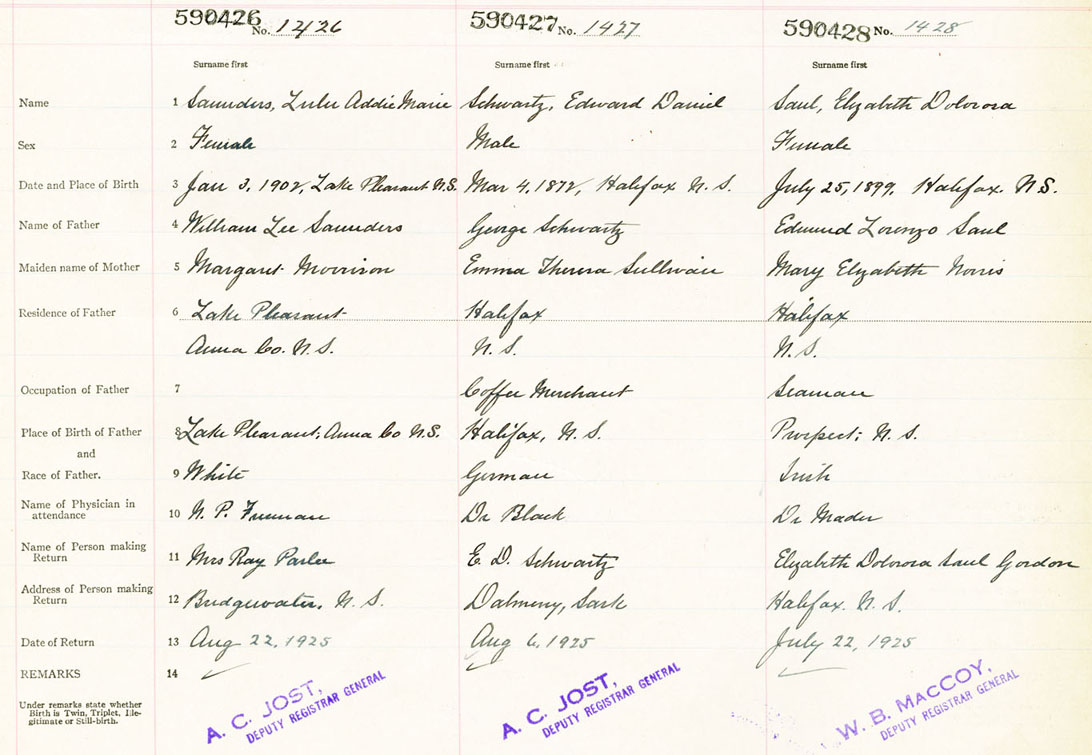 590426 No. 1426 590427 No. 1427 590428 No. 1428
Surname first Surname first Surname first
Name 1 Saunders, Lulu Addie Marie Schwartz, Edward Daniel Saul, Elizabeth Dolorosa
Sex 2 Female Male Female
Date and Place of Birth 3 Jan 3, 1902, Lake Pleasant N.S. Mar 4, 1872, Halifax N. S. July 25, 1899, Halifax. N.S.
Name of Father 4 William Lee Saunders George Schwartz Edmund Lorenzo Saul
Maiden name of Mother 5 Margaret Morrison Emma Theresa Sullivan Mary Elizabeth Norris
Residence of Father 6 Lake Pleasant Halifax Halifax
Anna Co. N. S. N. S. N. S.
Occupation of Father 7 Coffee Merchant Seaman
Place of Birth of Father 8 Lake Pleasant, Anna Co N.S. Halifax, N. S. Prospect, N. S.
and
Race of Father. 9 White German Irish
Name of Physician in
attendance 10 N. P. Freeman Dr Black Dr Mader
Name of Person making
Return 11 Mrs Ray E. D. Schwartz Elizabeth Dolorosa Saul Gordon
Address of Person making
Return 12 Bridgewater, N. S. Dalmeny, Sask Halifax. N. S.
Date of Return 13 Aug 22, 1925 Aug 6, 1925 July 22, 1925
REMARKS 14
Under remarks state whether
Birth is Twin, Triplet, Ille-
gitimate or Still-birth.
A. C. JOST,
DEPUTY REGISTRAR GENERAL
A. C. JOST,
DEPUTY REGISTRAR GENERAL
W. B. MACCOY,
DEPUTY REGISTRAR GENERAL